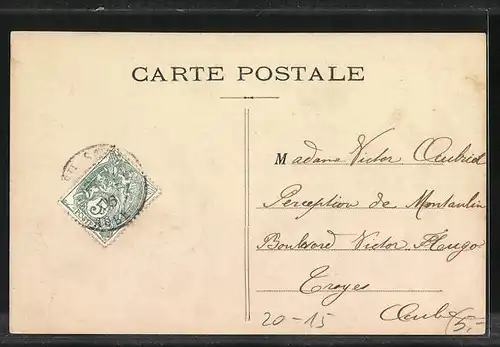 CARTE POSTALE
Madame Victor Aubriot
Perception de Montaulin
Boulevard Victor Hugo
Troyes
Aube
20-15
5,-